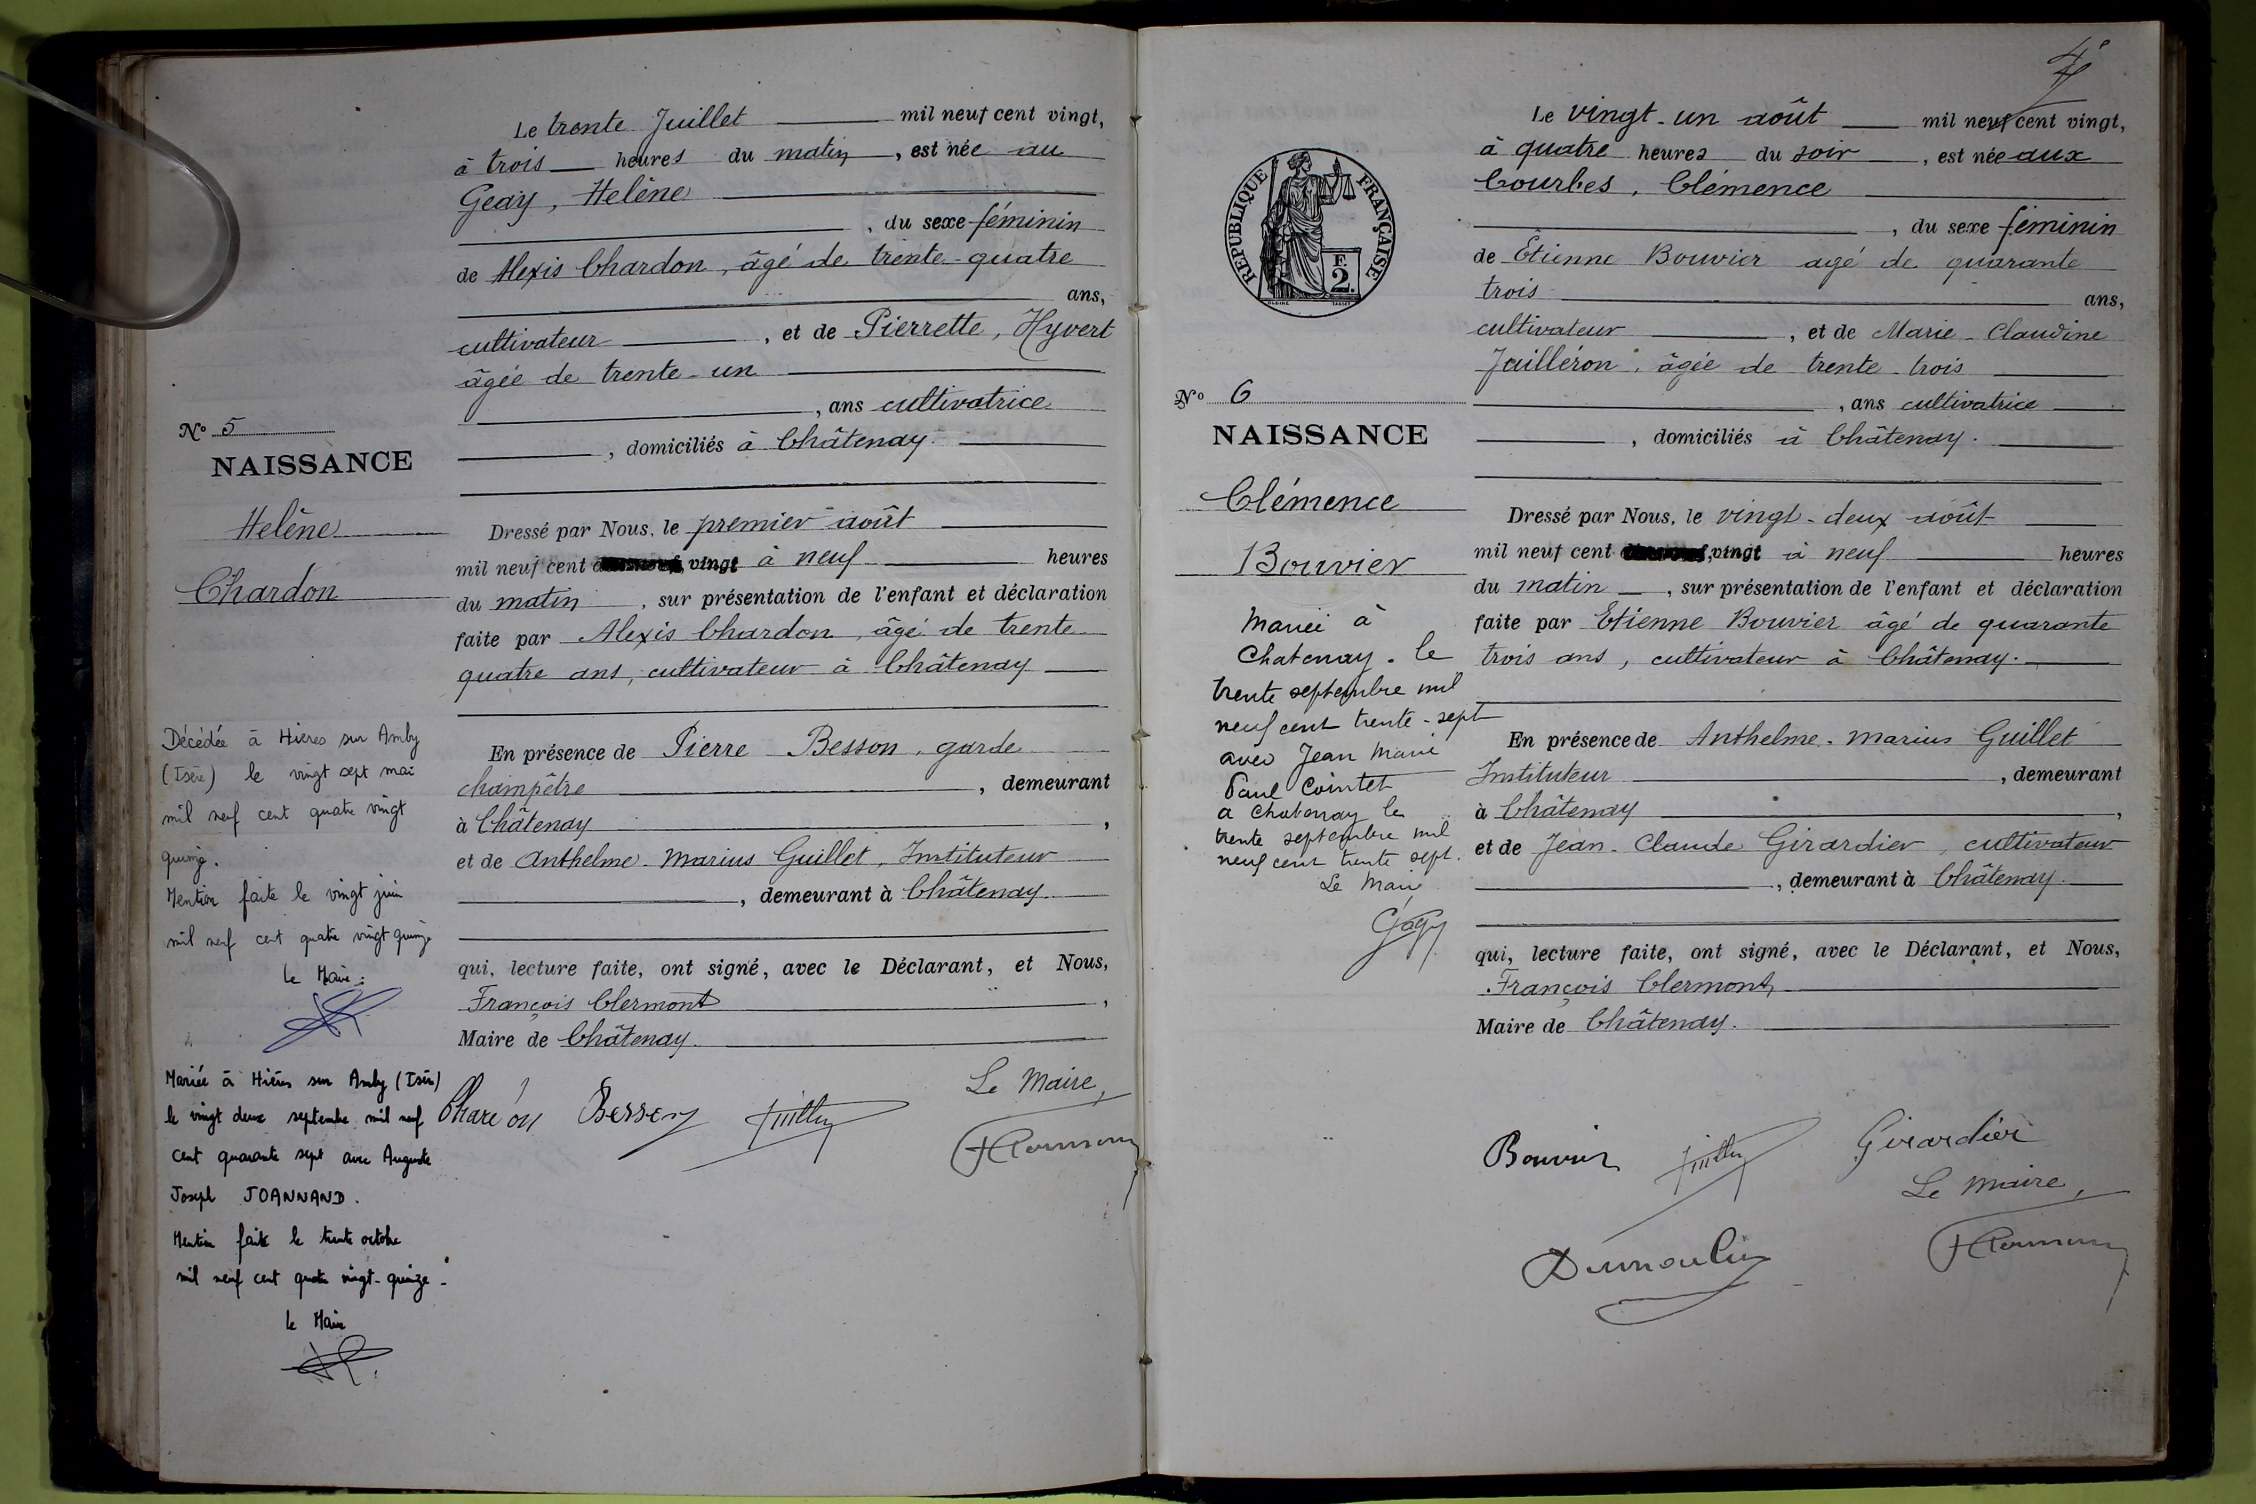 Le trente Juillet mil neuf cent vingt,
à trois heures du matin, est née au
Geay, Helène
, du sexe féminin
de Alexis Chardon, âgé de trente-quatre
ans,
cultivateur, et de Pierrette, Hyvert
âgée de trente-un
, ans cultivatrice
, domiciliés à Châtenay.
Nº 5
NAISSANCE
Helène
Chardon
Dressé par Nous, le premier août
mil neuf cent vingt à neuf heures
du matin, sur présentation de l'enfant et déclaration
faite par Alexis Chardon, âgé de trente
quatre ans, cultivateur à Châtenay
En présence de Pierre Besson, garde
champêtre, demeurant
à Châtenay,
et de Anthelme-Marius Guillet, Instituteur
, demeurant à Châtenay.
qui, lecture faite, ont signé, avec le Déclarant, et Nous,
François Clermont,
Maire de Châtenay.
Le Maire,
Décédée à Hières sur Amby
(Isère) le vingt sept mai
mil neuf cent quatre vingt
quinze.
Mention faite le vingt juin
mil neuf cent quatre vingt quinze
Le Maire:
Mariée à Hières sur Amby (Isère)
le vingt deux septembre mil neuf
cent quarante sept avec Auguste
Joseph JOANNAND.
Mention faite le trente octobre
mil neuf cent quatre vingt-quinze-
Le Maire
4
Le vingt-un août mil neuf cent vingt,
à quatre heures du soir, est née aux
Courbes, Clémence
, du sexe féminin
de Etienne Bouvier agé de quarante
trois ans,
cultivateur, et de Marie-Claudine
Juilléron, âgée de trente-trois
, ans cultivatrice
, domiciliés à Châtenay.
REPUBLIQUE FRANÇAISE
F.
2.
Nº 6
NAISSANCE
Clémence
Bouvier
Dressé par Nous, le vingt-deux août
mil neuf cent vingt à neuf heures
du matin, sur présentation de l'enfant et déclaration
faite par Etienne Bouvier âgé de quarante
trois ans, cultivateur à Châtenay.
En présence de Anthelme-Marius Guillet
Instituteur, demeurant
à Châtenay,
et de Jean-Claude Girardier, cultivateur
, demeurant à Châtenay.
qui, lecture faite, ont signé, avec le Déclarant, et Nous,
François Clermont,
Maire de Châtenay.
Bouvier
Girardier
Le Maire,
Dumoulin
Mariée à
Chatenay. le
trente septembre mil
neuf cent trente-sept
avec Jean Marie
Paul Cointet
a Chatenay le
trente septembre mil
neuf cent trente sept.
Le Maire